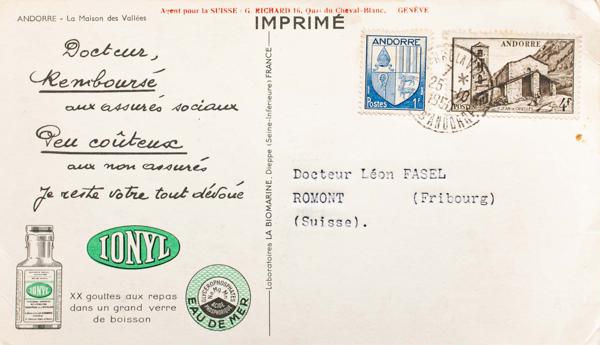 Agent pour la SUISSE : G. RICHARD 16, Quai du Cheval-Blanc, GENÈVE
ANDORRE - La Maison des Vallées
IMPRIMÉ
Docteur,
Remboursé
aux assurés sociaux
Peu coûteux
aux non assurés
Je reste votre tout dévoué
IONYL
IONYL
XX gouttes aux repas
dans un grand verre
de boisson
GLYCÉROPHOSPHATES
ACIDE
PHOSPHORIQUE
EAU DE MER
Laboratoires LA BIOMARINE, Dieppe (Seine-Inférieure) FRANCE
ANDORRE
Postes 1F
ANDORRE
POSTES
4F
Docteur Léon FASEL
ROMONT (Fribourg)
(Suisse).